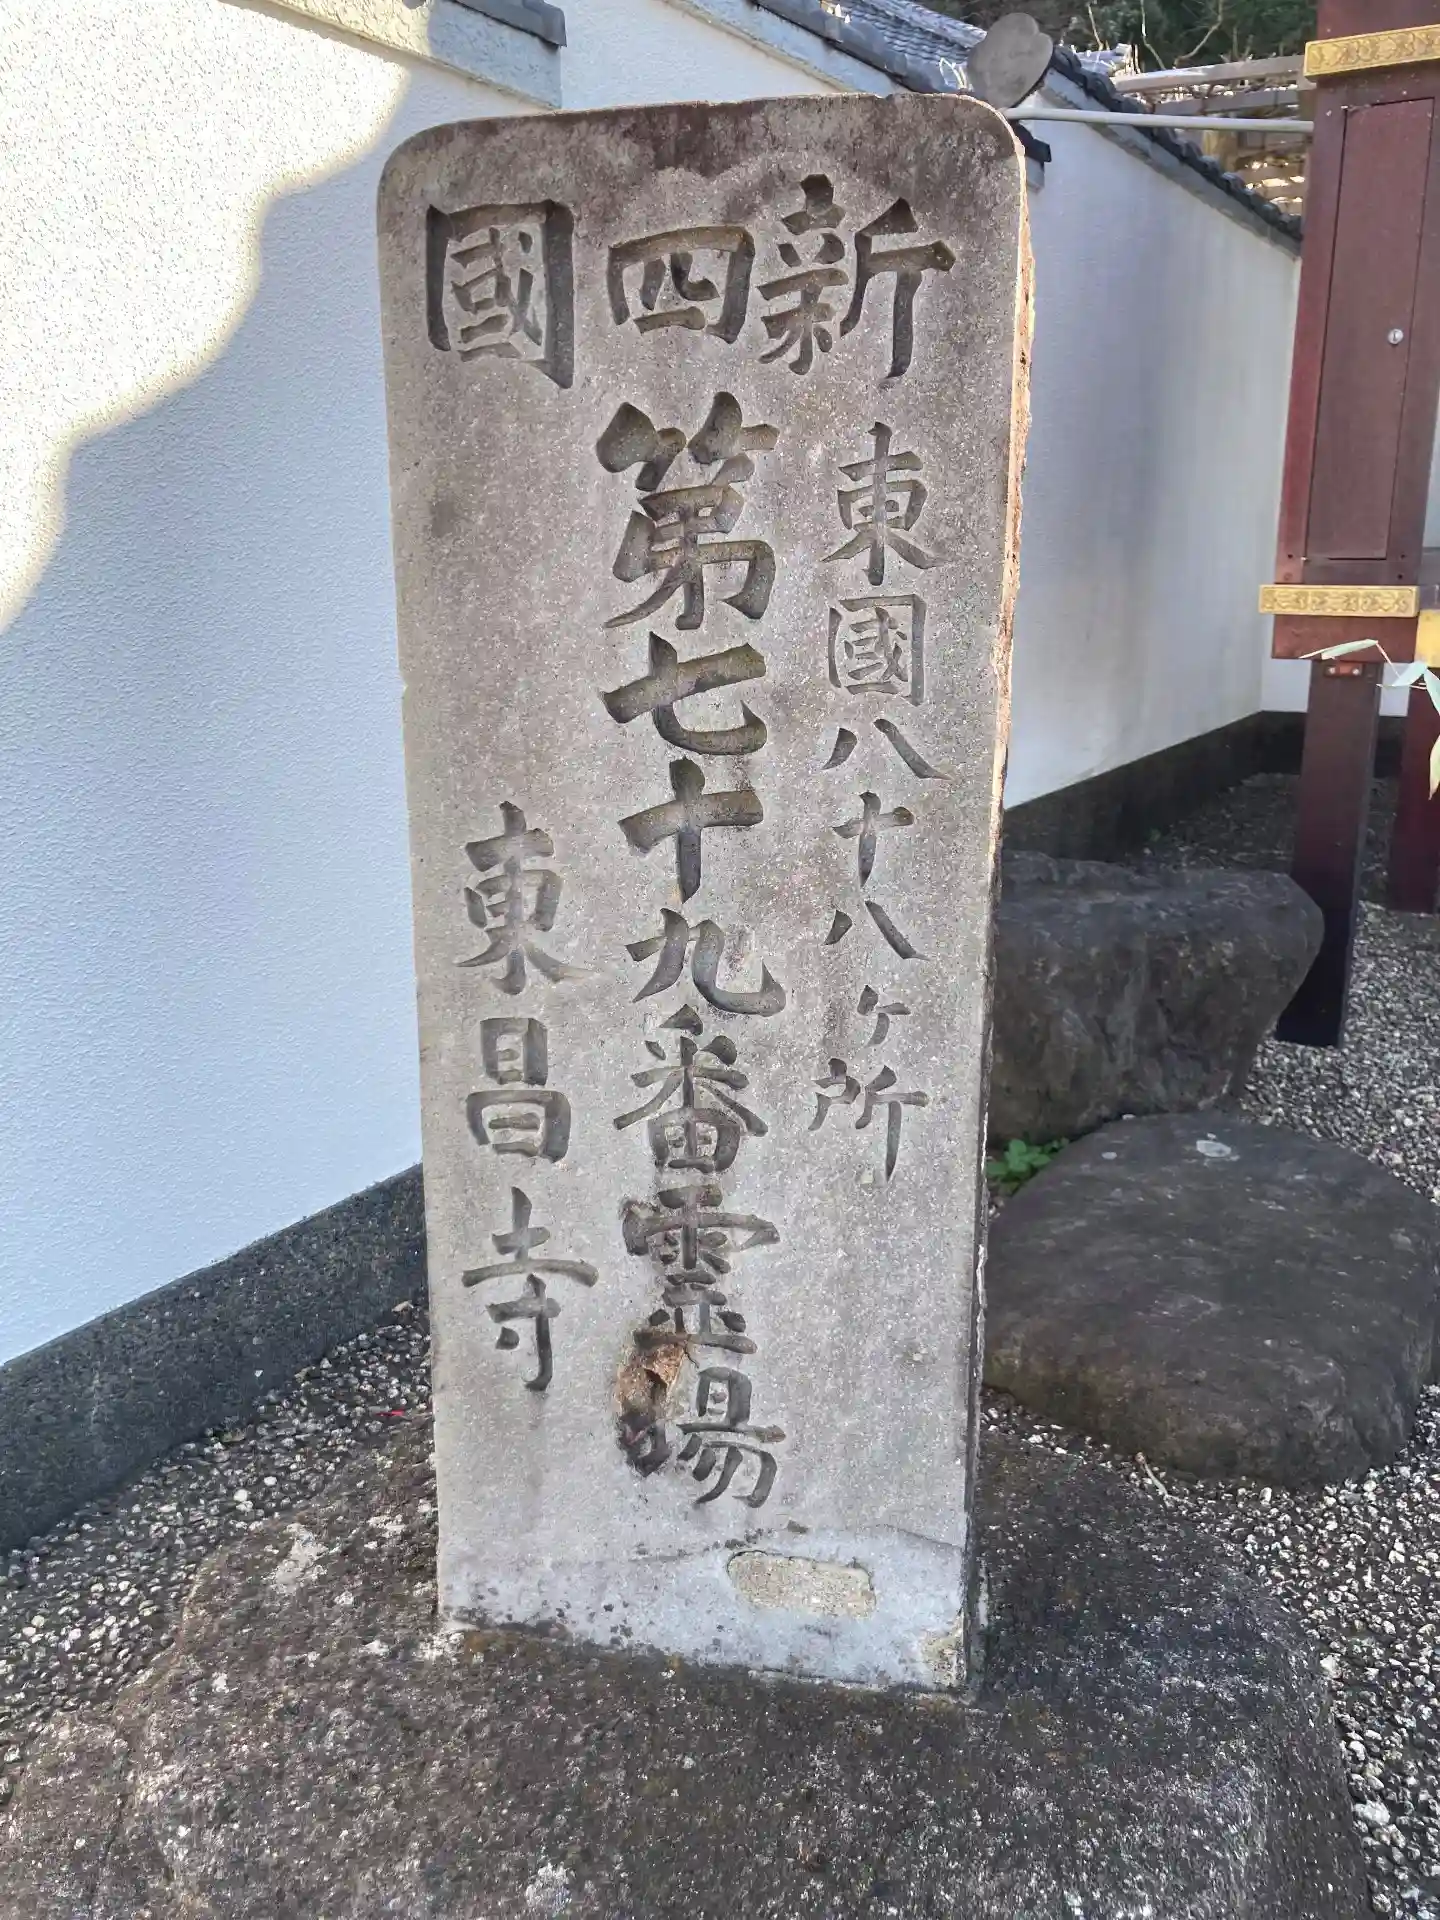 新四國
東國八十八ヶ所
第七十九番霊場
東昌寺